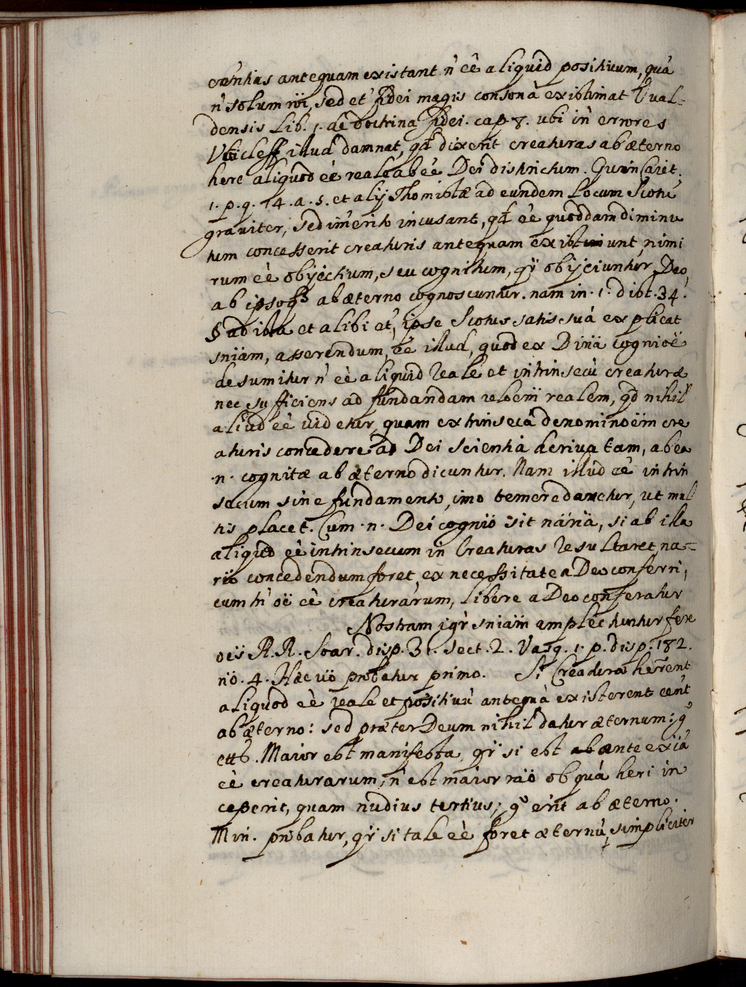 essentias antequam existant n̄ eē aliquid positivum, quā
n̄ solum rōi, sed et fidei magis consonā existimat Vual-
densis Lib. 1. de doctrina fidei. cap 8. ubi in errores
Vvicleff illud damnat, qd̄ dixerit creaturas ab æterno
here aliquod eē reale ab eē Dei distinctum. Quin Caiet.
1. p. q. 14. a. 5. et alij Thomistæ ad eundem Locum Scotū
graviter, sed im̄erito incusant, qd̄ eē quoddam diminu
tum concesserit creaturis antequam existunt, nimi
rum eē obiectum, seu cognitum, qȳ obijciuntur Deo,
ab ipsoq ab æterno cognoscuntur. nam in .1. dist. 36.
§ ad ista et alibi et ipse Scotus satis suā explicat
sn̄iam, asserendum, eē illud, quod ex Divīa cognitōe
desumitur n̄ eē aliquid reale et intrinsecū creaturæ
nec sufficiens ad fundandam rela͞oem realem, qd̄ nihil
aliud eē videtur, quam extrinsecā denomina͞oem cre
aturis concedere ab Dei scientiā derivatam, ab ea
.n. cognitæ ab æterno dicuntur. Nam illud eē intrin
secum sine fundamento, imo temere datur, ut mul
tis placet. Cum .n. Dei cognitio sit nāriā, si ab illa
aliquod eē intrinsecum in Creaturas resultaret, na-
riō concedendum foret, ex necessitate a Deo conferri,
cum tn̄ oē eē creaturarum, libere a Deo conferatur
Nostram igr̄ sn̄iam amplectuntur fere
oēs R.R. Soar. disp. 31. sect. 2. Vazq. 1. p. disp. 182.
nō. 4. Hæc vō probatur primo. Si Creaturæ herent
aliquod eē reale et positivū antequā existerent eēnt
ab æterno: sed præter Deum nihil datur æternum: gͦ
etc. Maior est manifesta, qȳ si est ab ante exiā
eē creaturarum, n̄ est maior rāō ob quā heri in
ceperit, quam nudius tertius; gͦ erit ab æterno.
Min. probatur, qȳ si tale eē foret æternū, simpliciter